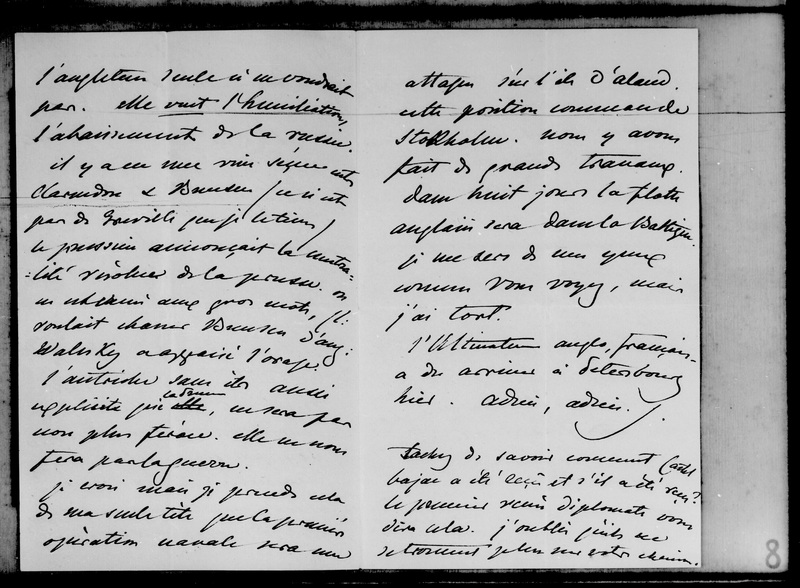 l'angleterre seule ici ne voudrait
pas. elle veut l'humiliation,
l'abaissement de la russie.
il y a eu une vive scène entre
Clarendon & Bunsen (ce n'est
pas de Greville que je le tiens)
le prussien annonçait la neutra-
-lité résolue de la prusse. on
en est venu aux gros mots,
voulait chasser Bunsen d'ang:
Walesky a appaisé l'orage.
l'autriche sans être aussi
explicite que la prusse, ne sera pas
non plus féroce. elle ne nous
fera pas la guerre.
je crois mais je prends cela
de ma seule tête que la première
opération navale sera une
attaque sur l'ile d'aland.
cette position commande
Stokholm. nous y avons
fait de grands travaux.
dans huit jours la flotte
anglaise sera dans la Baltique.
je me sers de mes yeux
comme vous voyez, mais
j'ai tort.
l'Ultimatum anglo, français-
a du arriver à Petersbourg
hier. adieu, adieu.
Tachez de savoir comment Castel
bajac a été reçu et s'il a été reçu?
le premier venu diplomate vous
dira cela. j'oublie qu'ils ne
se trouvent plus sur votre chemin.
8